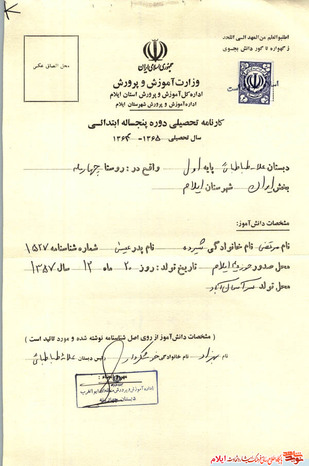 اطلبوا العلم من المهد الی اللحد
ز گهواره تا گور دانش بجوی
محل الصاق عکس
جمهوری اسلامی ایران
وزارت آموزش و پرورش
اداره کل آموزش و پرورش استان ایلام
اداره آموزش و پرورش شهرستان ایلام
کارنامه تحصیلی دوره پنجساله ابتدائی
سال تحصیلی ۱۳۶۵-۱۳۶۴
دبستان علامه طباطبائی پایه اول واقع در: روستا چهارمله
بخش ایوان شهرستان ایلام
مشخصات دانش‌آموز:
نام مرتضی نام خانوادگی نام پدر عیسی شماره شناسنامه ۱۵۲۷
محل صدور حوزه ایلام تاریخ تولد: روز ۲۰ ماه ۱۲ سال ۱۳۵۷
محل تولد
( مشخصات دانش‌آموز از روی اصل شناسنامه نوشته شده و مورد تائید است )
نام بهزاد نام خانوادگی رئیس دبستان علامه طباطبائی